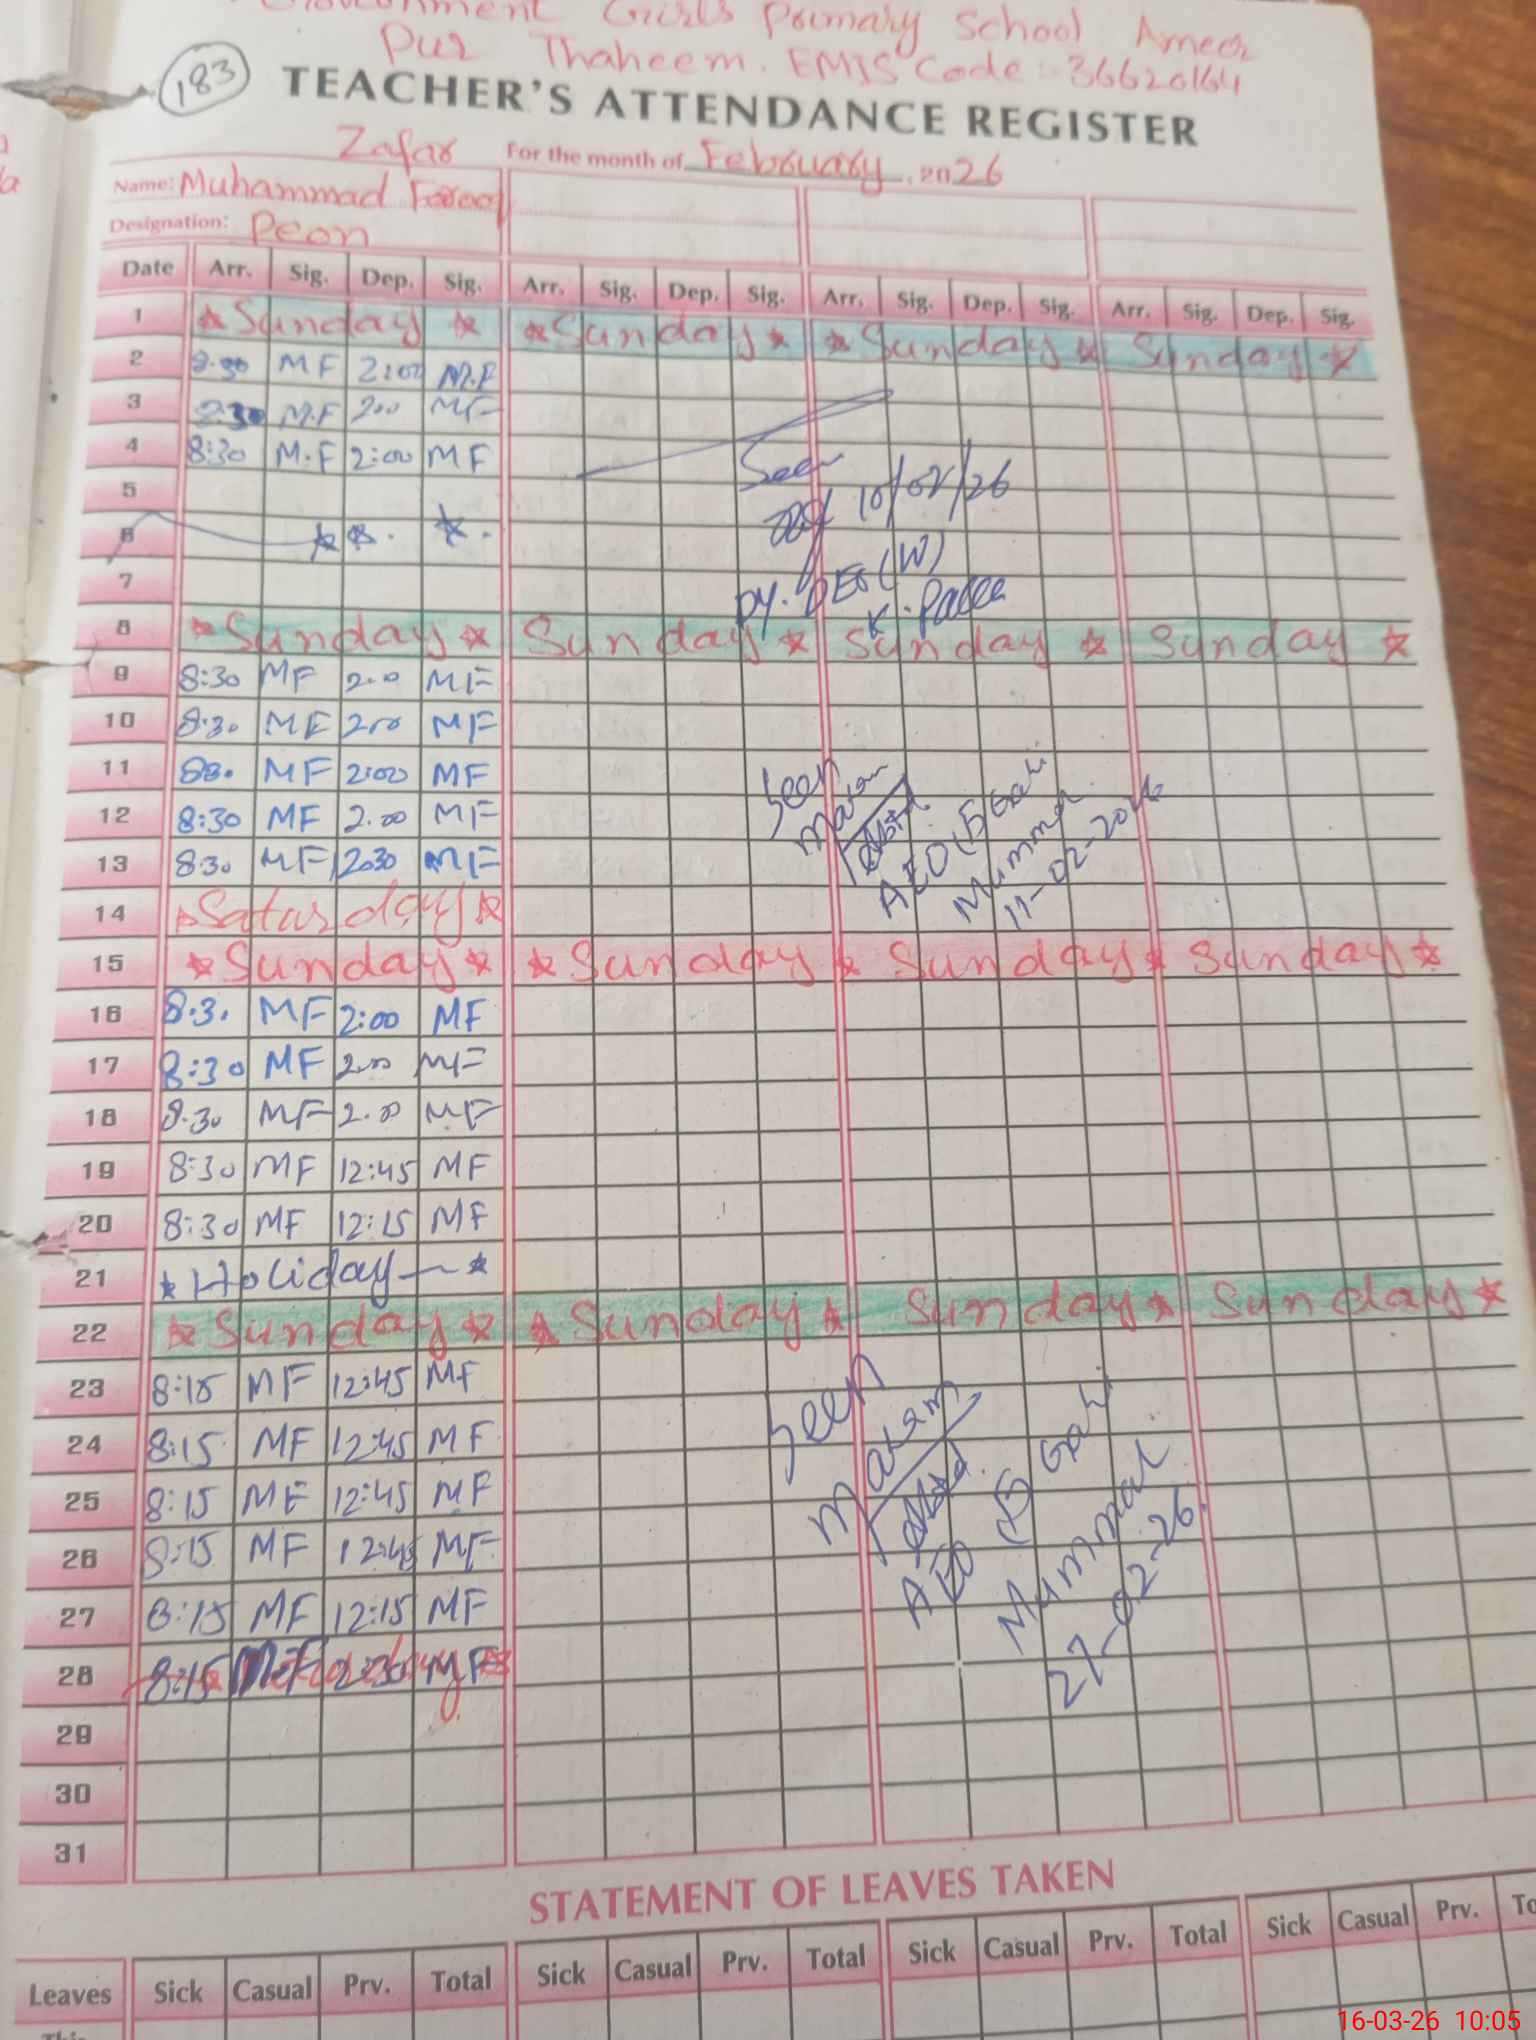 Government Girls Primary School Ameer
Pur Thaheem. EMIS Code:- 36620164
183
TEACHER'S ATTENDANCE REGISTER
Zafar For the month of February, 2026
Name: Muhammad
Designation: Peon
Date Arr. Sig. Dep. Sig. Arr. Sig. Dep. Sig. Arr. Sig. Dep. Sig. Arr. Sig. Dep. Sig.
1 Sunday Sunday Sunday Sunday
2 8:30 MF 2:00 M.F
3 8:30 M.F 200 MF
4 8:30 M.F 2:00 MF
Seen
5
10/02/26
6
Dy. DEO (W)
7
8 Sunday Sunday Sunday Sunday
9 8:30 MF 2.0 MF
10 8:30 MF 200 MF
11 88. MF 2:00 MF
Seen
12 8:30 MF 2.00 MF
13 830 MF 2030 MF
AEO
11-02-2026
14 Saturday
15 Sunday Sunday Sunday Sunday
16 8.3. MF 2:00 MF
17 8:30 MF 2.00 MF
18 8.30 MF 2.00 MF
19 8:30 MF 12:45 MF
20 8:30 MF 12:15 MF
21 Holiday
22 Sunday Sunday Sunday Sunday
23 8:15 MF 12:45 MF
Seen
24 8:15 MF 12:45 MF
25 8:15 MF 12:45 MF
26 8:15 MF 12:45 MF
AEO
27 8:15 MF 12:15 MF
27-02-26
28 8:15 MF
29
30
31
STATEMENT OF LEAVES TAKEN
Leaves Sick Casual Prv. Total Sick Casual Prv. Total Sick Casual Prv. Total Sick Casual Prv. To
This
16-03-26 10:05